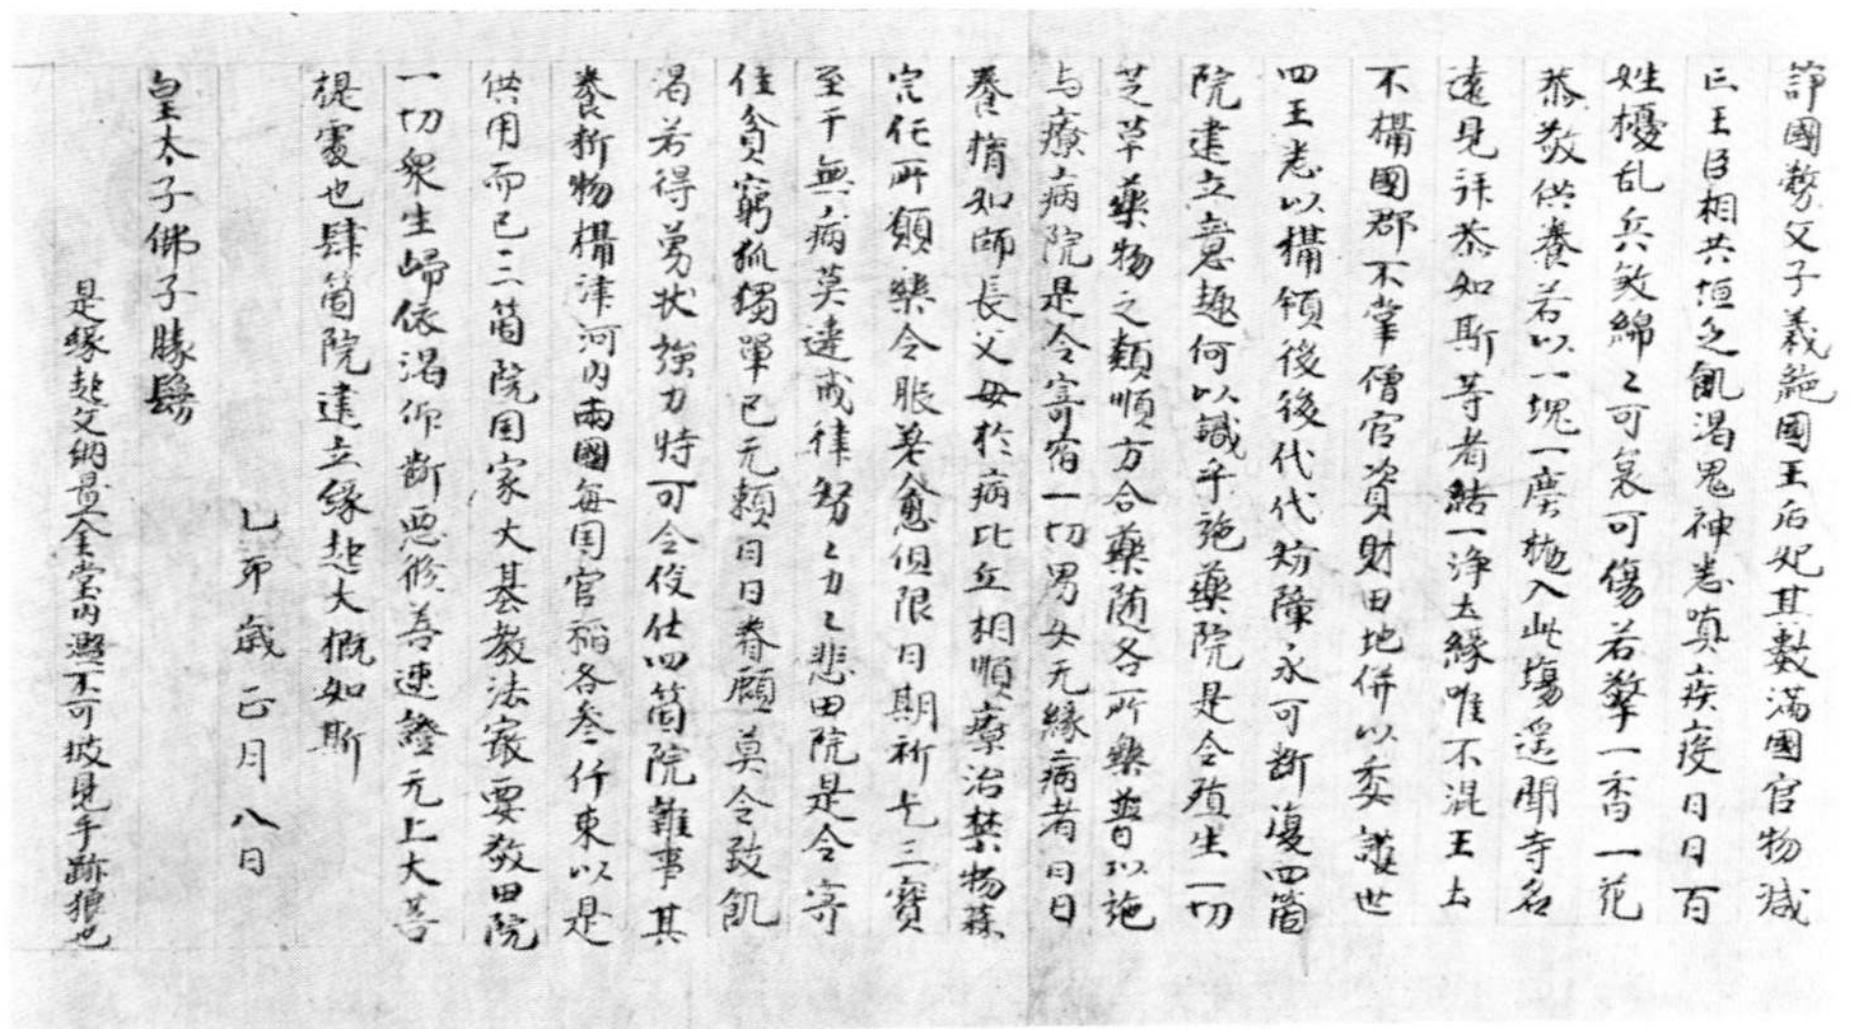 諍國勢父子義絶國王后妃其數滿國官物減
亡王臣相共恒乏飢渴鬼神恚嗔疾疫日日百
姓擾乱兵㪇綿々可哀可傷若擎一香一花
恭敬供養若以一塊一塵抛入此場遥聞寺名
遠見拜恭如斯等者結一浄土緣唯不混王土
不攝國郡不掌僧官資財田地併以委護世
四王悉以攝領後後代代妨障永可断復四箇
院建立意趣何以識乎施藥院是令殖生一切
芝草藥物之類順方合藥随各所樂普以施
与療病院是令寄宿一切男女无緣病者日日
養𢚩如師長父母於病比丘相順療治禁物蒜
宍任所願樂令服差愈但限日期祈乞三寶
至于無病莫違戒律努々力々悲田院是令寄
住貧窮孤獨單己无頼日日眷顧莫令致飢
渴若得勇状強力時可令伇仕四箇院雜事其
養新物攝津河内兩國每国官稲各叁仟束以是
供用而已三箇院国家大基教法最要敬田院
一切衆生歸依渴仰断悪修善速證无上大菩
提處也肆箇院建立緣起大概如斯
乙卯歳正月八日
皇太子佛子勝鬘
是緣起文納置金堂内濫不可披見手跡狼也